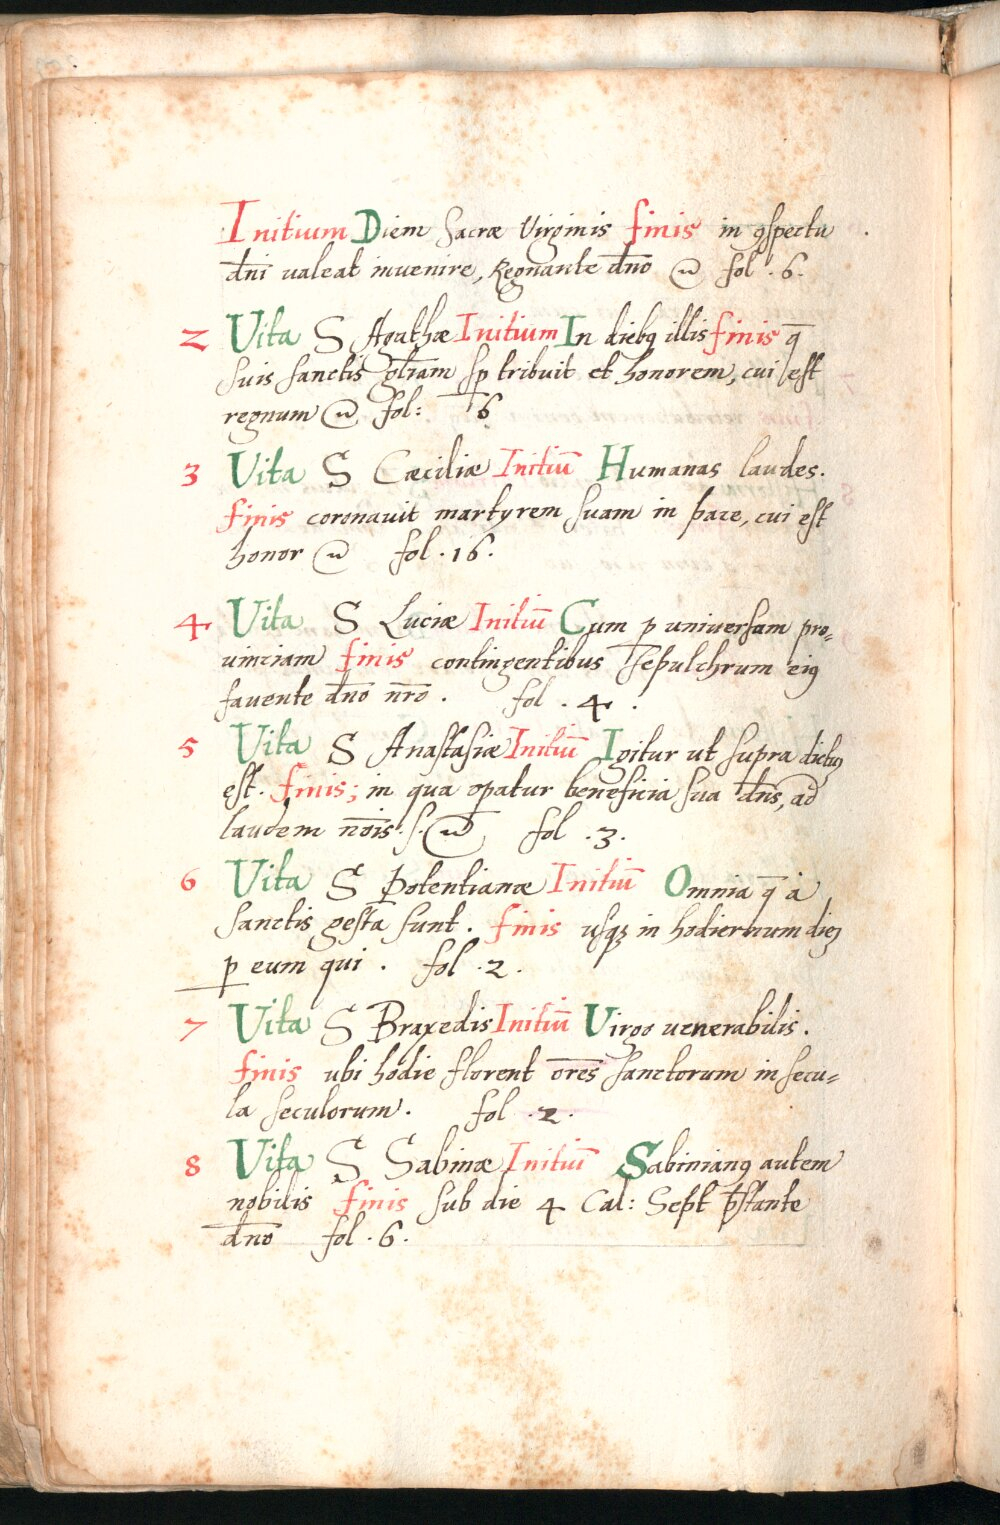 Initium Diem sacræ Virginis finis in ꝯspectu
dn̄i valeat invenire, Regnante dn̄o fol. 6.
2 Vita S Agathæ Initium In diebꝫ illis finis q̄
suis sanctis gl̄iam sp tribuit et honorem, cui est
regnum fol: 6
3 Vita S Cæciliæ Initiū Humanas laudes.
finis coronavit martyrem suam in pace, cui est
honor fol. 16.
4 Vita S Luciæ Initiū Cum ꝑ universam pro-
vinciam finis contingentibus sepulchrum eiꝰ
favente dn̄o nr̄o. fol. 4.
5 Vita S Anastasiæ Initiū Igitur ut supra dictū
est. finis; in qua opatur beneficia sua dn̄s, ad
laudem nōis. fol. 3.
6 Vita S Potentianæ Initiū Omnia q̄ à
sanctis gesta sunt. finis usqꝫ in hodiernum diē
ꝑ eum qui. fol. 2.
7 Vita S Braxedis Initiū Virgo venerabilis.
finis ubi hodie florent or̄es sanctorum in secu-
la seculorum. fol. 2.
8 Vita S Sabinæ Initiū Sabinianꝰ autem
nobilis finis sub die 4 Cal: Sept p̄stante
dn̄o fol. 6.